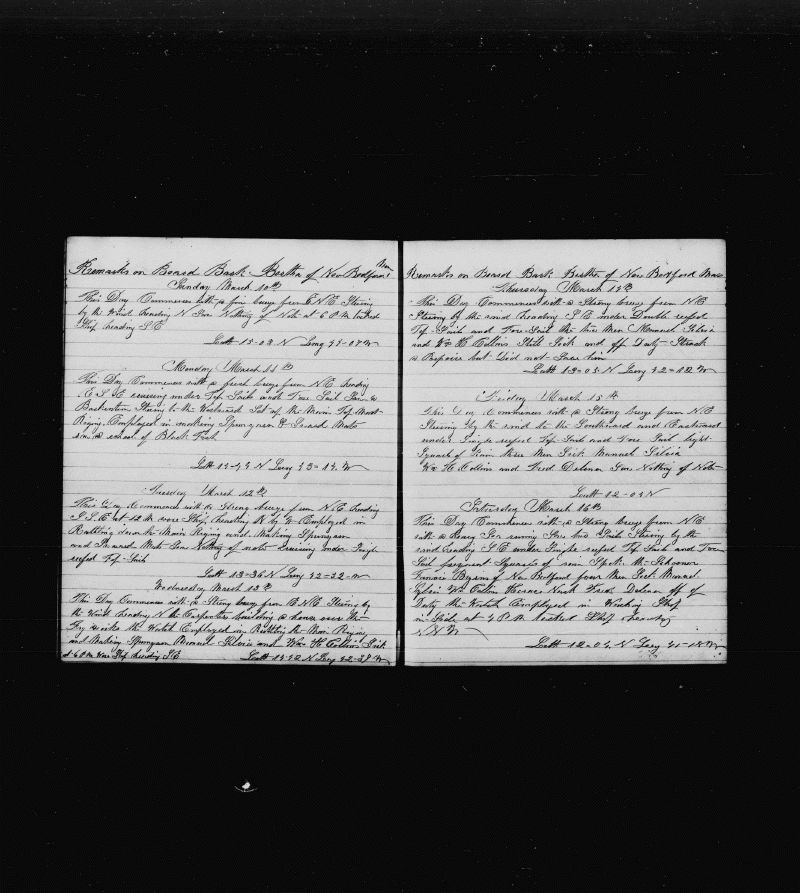 Remarks on Board Bark Bertha of New Bedford Mass
Sunday March 10th
This Day Commences with a fine breeze from E N E Steering
by the Wind heading N Saw Nothing of Note at 6 P M tacked
Ship heading S E
Latt 15-03 N Long 41-07 W
Monday March 11th
This Day Commences with a fresh breeze from N E heading
E S E cruising under Top Sails and Fore Sail
Steering to the Westward Set up the Main Top Mast
Riging Employed in making Spunyarn & Sword Mats
saw a school of Black Fish
Latt N Long W
Tuesday March 12th
This Day Commences with a Strong breeze from N E heading
E S E at 12 M wore Ship heading N by W Employed in
Rattling down the Main Riging and Making Spunyarn
and Sword Mats Saw Nothing of note Cruising under Single
reefed Top Sails
Latt 13-36 N Long 42-22 W
Wednesday March 13th
This Day Commences with a Strong breeze from E N E Steering by
the Wind heading N the Carpenter building a house over the
Try works the Watch Employed in Rattling the Main Riging
and Making Spunyarn Manuel Silvia and Wm H Collins Sick
at 6 P M Wore Ship heading S E Latt N Long W
Remarks on Board Bark Bertha of New Bedford Mass
Thursday March 14th
This Day Commences with a Strong breeze from N E
Steering by the wind heading S E under Double reefed
Top Sails and Fore Sail the two Men Manuel Silvia
and Wm H Collins Still Sick and off Duty
a Porpoise but Did not Save him
Latt 13-05 N Long 42-12 W
Friday March 15th
This Day Commences with a Strong breeze from N E
Steering by the wind to the Southward and Eastward
under Single reefed Top Sails and Fore Sail light
Squalls of Rain three Men Sick Manuel Silvia
Wm H Collins and Fred Delman Saw Nothing of Note
Latt 12-05 N
Saturday March 16th
This Day Commences with a Strong breeze from N E
with a Heavy Sea running Saw two Sails Steering by the
wind heading S E under Single reefed Top Sails and Fore
Sail frequent Squalls of rain Spoke the Schooner
of New Bedford four Men Sick Manuel
Sylvia Wm Collins Fred Delman off of
Duty the Watch Employed in Working Ship
in Sails at 4 P M tacked Ship heading
N N W
Latt 12-04 N Long 41-18 W